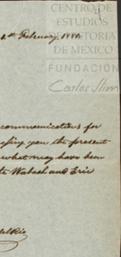 CENTRO DE
ESTUDIOS
DE HISTORIA
DE MÉXICO
FUNDACIÓN
Carlos Slim
February, 1880
communications for
you the present
what may have been
Wabash and Erie